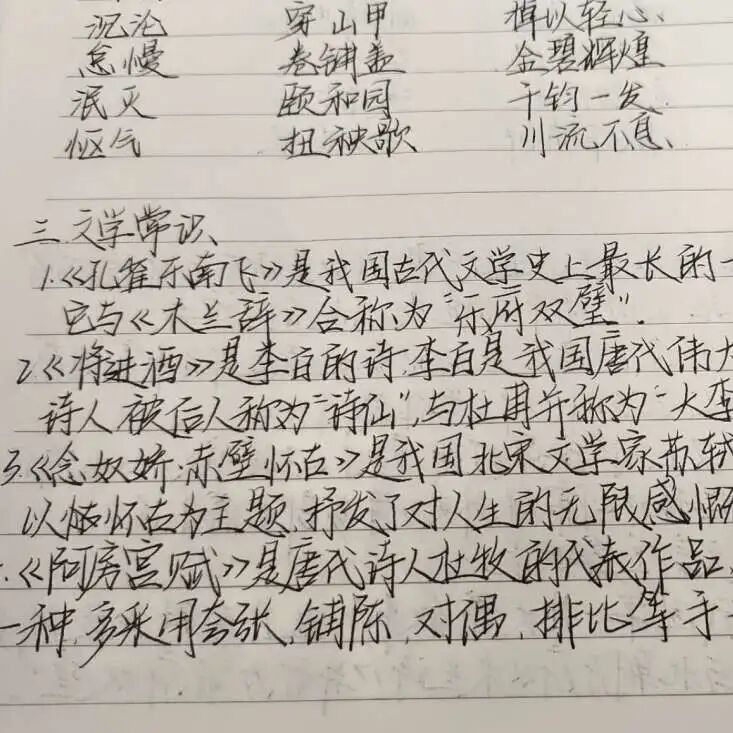 沉沦 穿山甲 掉以轻心、
怠慢 卷铺盖 金碧辉煌
泯灭 颐和园 千钧一发
怄气 扭秧歌 川流不息、
三.文学常识、
1.《孔雀东南飞》是我国古代文学史上最长的一
它与《木兰辞》合称为"乐府双璧".
2.《将进酒》是李白的诗.李白是我国唐代伟大
诗人被后人称为"诗仙",与杜甫并称为"大李
3.《念奴娇·赤壁怀古》是我国北宋文学家苏轼
以 怀古为主题,抒发了对人生的无限感慨
.《阿房宫赋》是唐代诗人杜牧的代表作品,
一种,多采用夸张,铺陈,对偶,排比等手